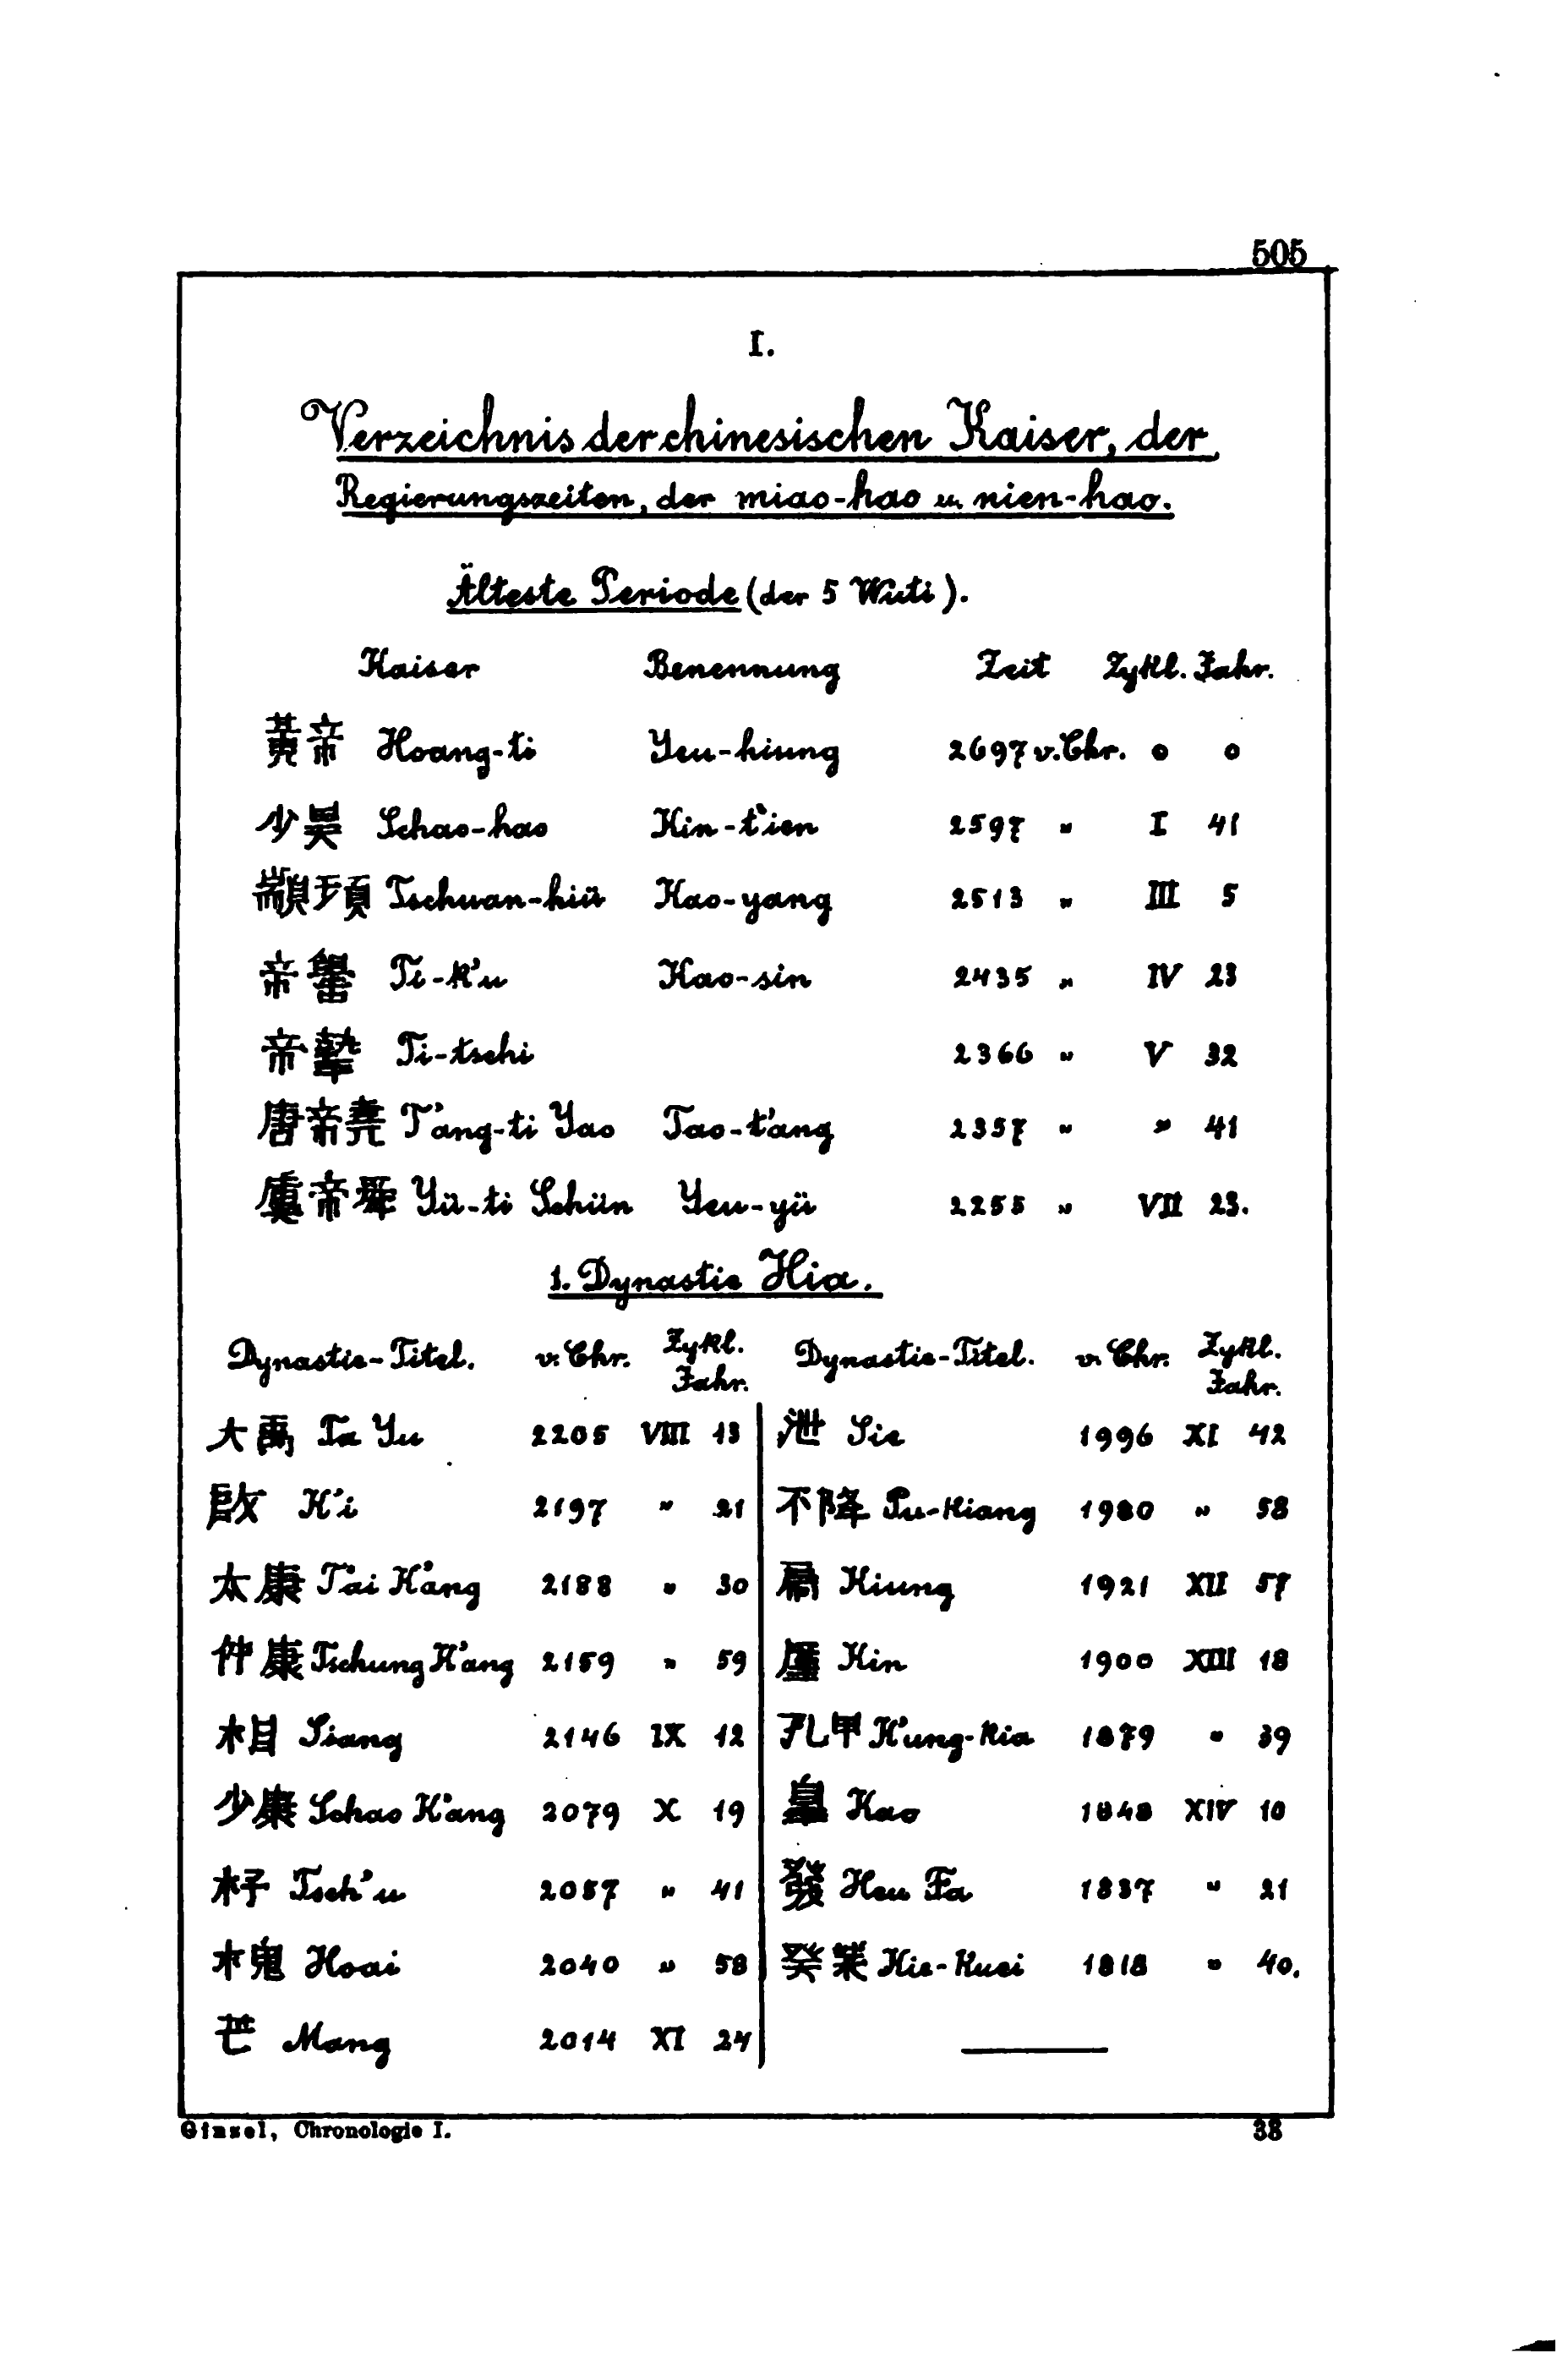 505
I.
Verzeichnis der chinesischen Kaiser, der
Regierungszeiten, der miao-hao u. nien-hao.
Älteste Periode (der 5 Wuti).
Kaiser Benennung Zeit Zykl. Jahr.
黃帝 Hoang-ti Yeu-hiung 2697 v. Chr. 0 0
少昊 Schao-hao Kin-t'ien 2597 " I 41
顓頊 Tschuan-hiü Kao-yang 2513 " III 5
帝嚳 Ti-k'u Kao-sin 2435 " IV 23
帝摯 Ti-tschi 2366 " V 32
唐帝堯 T'ang-ti Yao Tao-t'ang 2357 " " 41
虞帝舜 Yü-ti Schün Yeu-yü 2255 " VII 23.
1. Dynastie Hia.
Dynastie-Titel. v. Chr. Zykl. Jahr. Dynastie-Titel. v. Chr. Zykl. Jahr.
大禹 Ta Yu 2205 VIII 13 泄 Sie 1996 XI 42
啟 K'i 2197 " 21 不降 Pu-kiang 1980 " 58
太康 T'ai K'ang 2188 " 30 扃 Kiung 1921 XII 57
仲康 Tschung K'ang 2159 " 59 廑 Kin 1900 XIII 18
相 Siang 2146 IX 12 孔甲 K'ung-kia 1879 " 39
少康 Schao K'ang 2079 X 19 皋 Kao 1848 XIV 10
杼 Tsch'u 2057 " 41 發 Heu Fa 1837 " 21
槐 Hoai 2040 " 58 癸桀 Kie-Kuei 1818 " 40.
芒 Mang 2014 XI 24
Ginzel, Chronologie I. 38